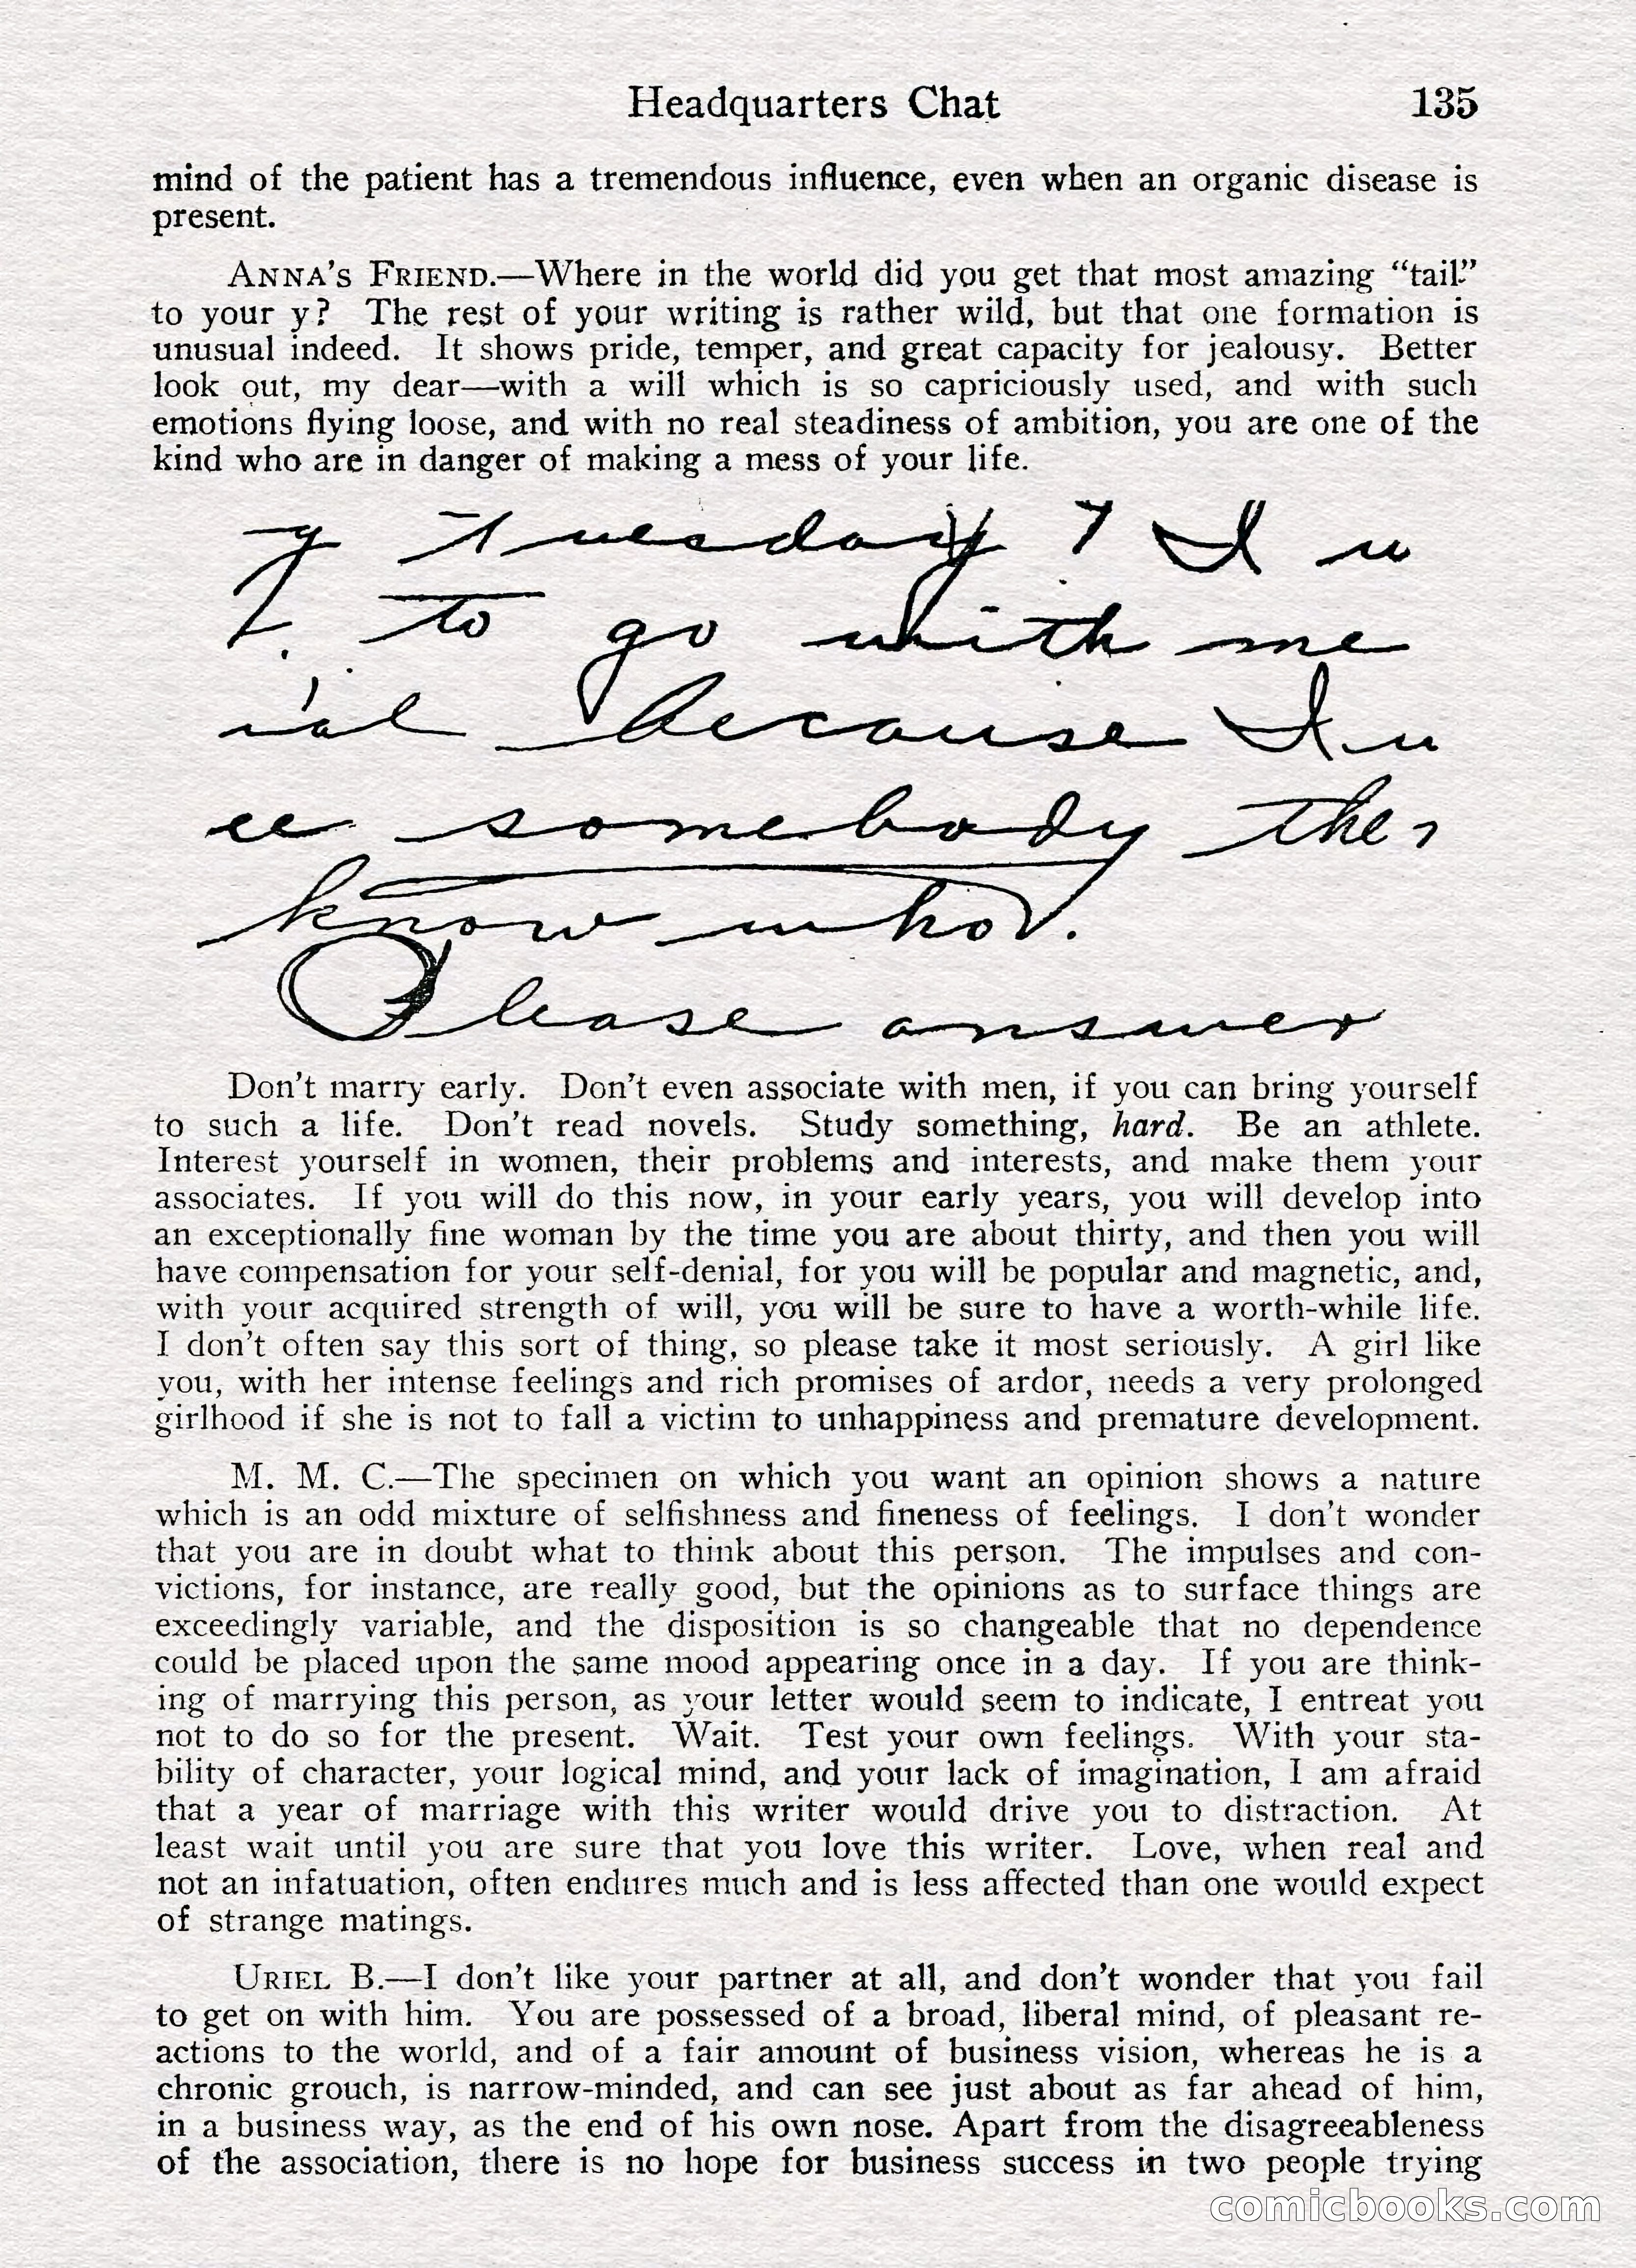 Headquarters Chat 135
mind of the patient has a tremendous influence, even when an organic disease is
present.
ANNA'S FRIEND.—Where in the world did you get that most amazing "tail"
to your y? The rest of your writing is rather wild, but that one formation is
unusual indeed. It shows pride, temper, and great capacity for jealousy. Better
look out, my dear—with a will which is so capriciously used, and with such
emotions flying loose, and with no real steadiness of ambition, you are one of the
kind who are in danger of making a mess of your life.
y Tuesday? I w
to go with me
ial because I w
ee somebody the
know who.
Please answer
Don't marry early. Don't even associate with men, if you can bring yourself
to such a life. Don't read novels. Study something, hard. Be an athlete.
Interest yourself in women, their problems and interests, and make them your
associates. If you will do this now, in your early years, you will develop into
an exceptionally fine woman by the time you are about thirty, and then you will
have compensation for your self-denial, for you will be popular and magnetic, and,
with your acquired strength of will, you will be sure to have a worth-while life.
I don't often say this sort of thing, so please take it most seriously. A girl like
you, with her intense feelings and rich promises of ardor, needs a very prolonged
girlhood if she is not to fall a victim to unhappiness and premature development.
M. M. C.—The specimen on which you want an opinion shows a nature
which is an odd mixture of selfishness and fineness of feelings. I don't wonder
that you are in doubt what to think about this person. The impulses and con-
victions, for instance, are really good, but the opinions as to surface things are
exceedingly variable, and the disposition is so changeable that no dependence
could be placed upon the same mood appearing once in a day. If you are think-
ing of marrying this person, as your letter would seem to indicate, I entreat you
not to do so for the present. Wait. Test your own feelings. With your sta-
bility of character, your logical mind, and your lack of imagination, I am afraid
that a year of marriage with this writer would drive you to distraction. At
least wait until you are sure that you love this writer. Love, when real and
not an infatuation, often endures much and is less affected than one would expect
of strange matings.
URIEL B.—I don't like your partner at all, and don't wonder that you fail
to get on with him. You are possessed of a broad, liberal mind, of pleasant re-
actions to the world, and of a fair amount of business vision, whereas he is a
chronic grouch, is narrow-minded, and can see just about as far ahead of him,
in a business way, as the end of his own nose. Apart from the disagreeableness
of the association, there is no hope for business success in two people trying
comicbooks.com